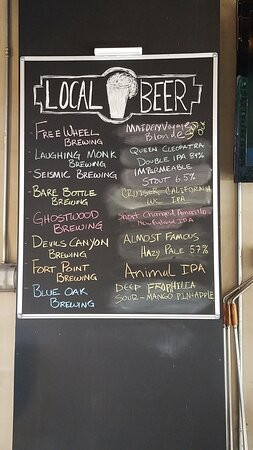 LOCAL BEER
FREE WHEEL BREWING
Blonde
LAUGHING MONK BREWING
QUEEN CLEOPATRA
DOUBLE IPA 8.4%
SEISMIC BREWING
IMPERMEABLE
STOUT 6.5%
BARE BOTTLE BREWING
CRUISER CALIFORNIA
IPA
GHOSTWOOD BREWING
Short Changed Amarillo
New England IPA
DEVILS CANYON BREWING
ALMOST FAMOUS
HAZY PALE 5.7%
FORT POINT BREWING
Animal IPA
BLUE OAK BREWING
DEEP
SOUR - MANGO PINEAPPLE